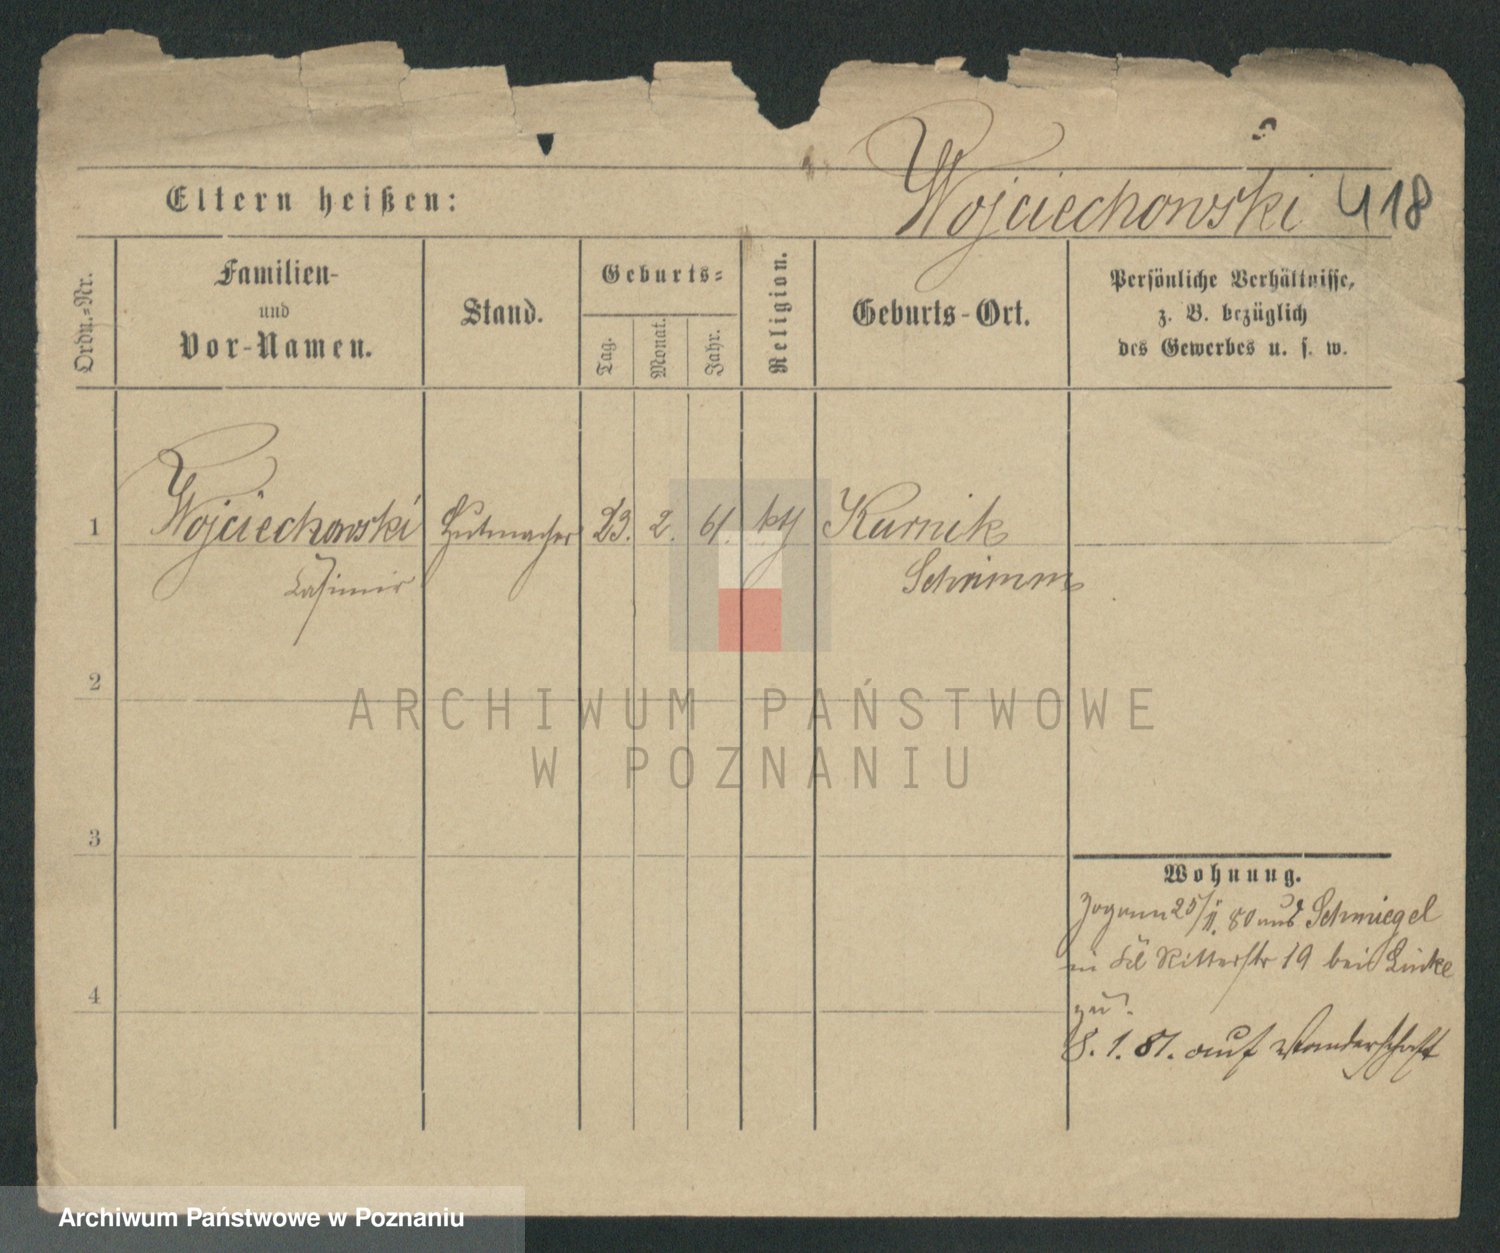 Wojciechowski 418
Eltern heißen:
Ordn.=Nr.
Familien-
und
Vor-Namen.
Stand.
Geburts=
Tag.
Monat.
Jahr.
Religion.
Geburts-Ort.
Persönliche Verhältnisse,
z. B. bezüglich
des Gewerbes u. s. w.
1 Wojciechowski Hutmacher 23. 2. 61. kth Kurnik
Casimir Schrimm
2
3
4
Wohnung.
Zogann 25/II. 80 aus Schmiegel
Ritterstr 19 bei Linke
zu.
8. 1. 81. auf Wanderschaft
ARCHIWUM PAŃSTWOWE
W POZNANIU
Archiwum Państwowe w Poznaniu